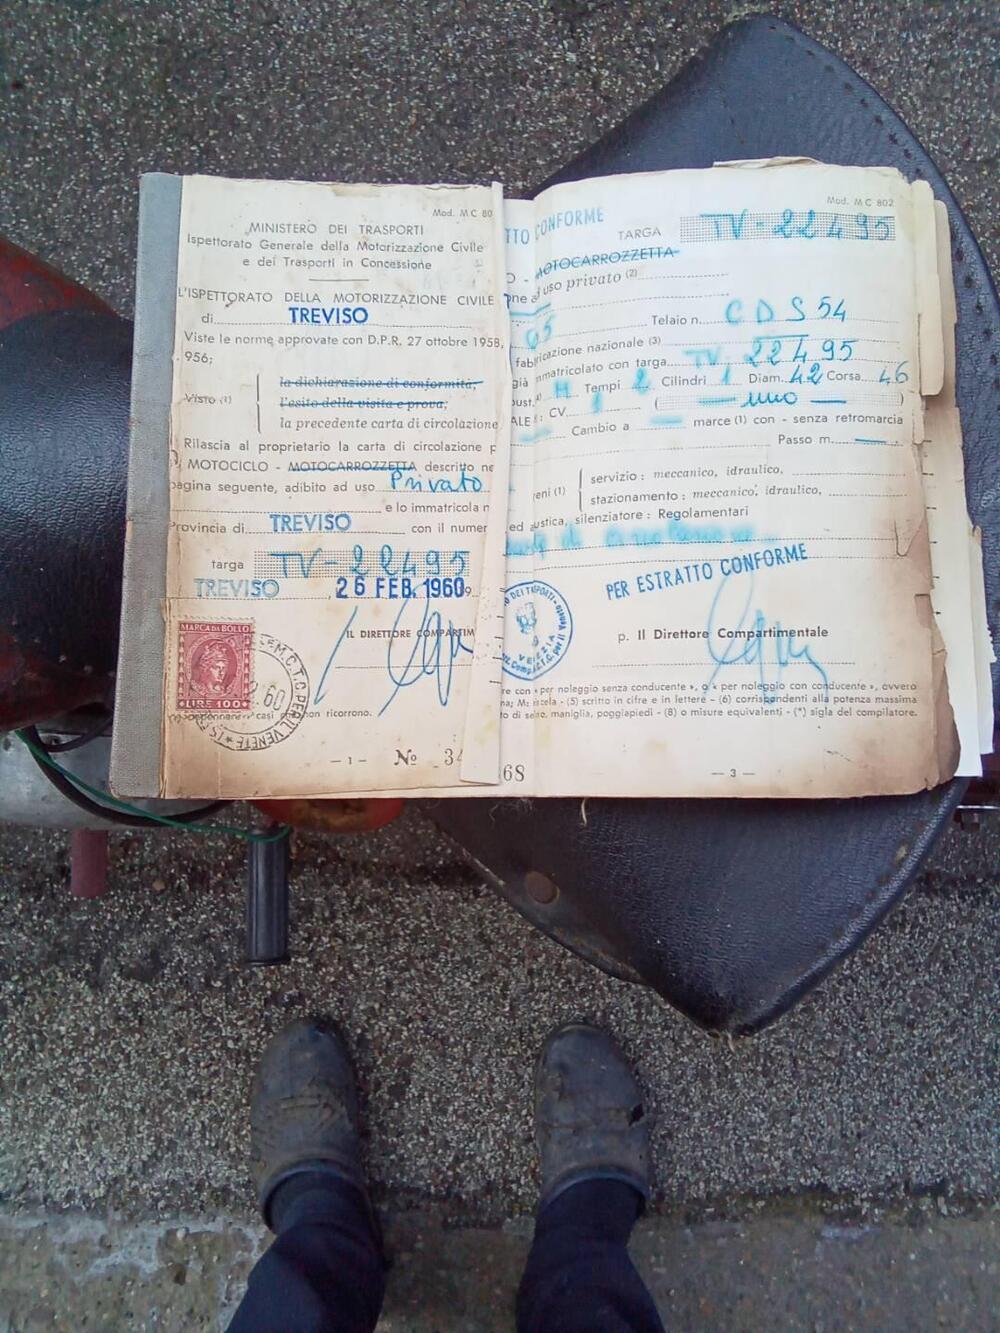 Mod. M C 80
MINISTERO DEI TRASPORTI
Ispettorato Generale della Motorizzazione Civile
e dei Trasporti in Concessione
L'ISPETTORATO DELLA MOTORIZZAZIONE CIVILE
di TREVISO
Viste le norme approvate con D.P.R. 27 ottobre 1958,
956;
la dichiarazione di conformità,
Visto (1) l'esito della visita e prova,
la precedente carta di circolazione
Rilascia al proprietario la carta di circolazione p
MOTOCICLO - MOTOCARROZZETTA descritto ne
pagina seguente, adibito ad uso Privato
e lo immatricola n
Provincia di TREVISO con il numer
targa TV-22495
TREVISO 26 FEB. 1960
IL DIRETTORE COMPARTIM
MARCA DA BOLLO
LIRE 100
casi non ricorrono.
- 1 - No 34
Mod. M C 802
TTO CONFORME
TARGA TV-22495
O - MOTOCARROZZETTA
ne ad uso privato (2)
65 Telaio n. CDS 54
fabbricazione nazionale (3)
già immatricolato con targa TV 22495
M Tempi 2 Cilindri 1 Diam. 42 Corsa 46
ALE: CV 1 ( — uno — )
Cambio a — marce (1) con - senza retromarcia
Passo m. —
servizio: meccanico, idraulico,
reni (1)
stazionamento: meccanico, idraulico,
ed acustica, silenziatore: Regolamentari
PER ESTRATTO CONFORME
p. Il Direttore Compartimentale
re con « per noleggio senza conducente », o « per noleggio con conducente », ovvero
na; M: miscela - (5) scritto in cifre e in lettere - (6) corrispondenti alla potenza massima
to di seno, maniglia, poggiapiedi - (8) o misure equivalenti - (*) sigla del compilatore.
68 - 3 -